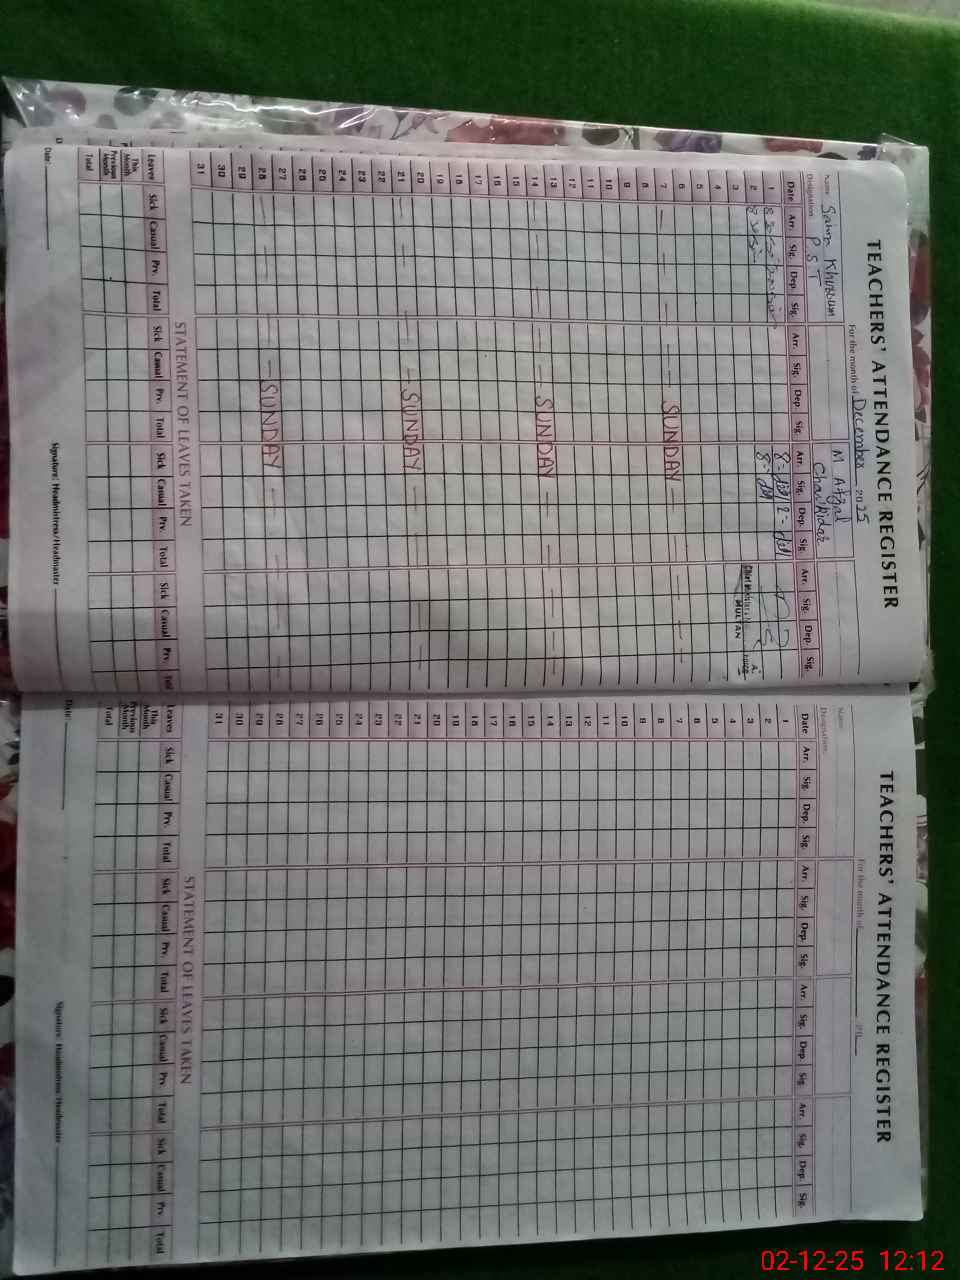 TEACHERS' ATTENDANCE REGISTER
For the month of December 2025
Name Saima
M Afzal
Designation P.S.T
Chowkidar
Date Arr. Sig. Dep. Sig. Arr. Sig. Dep. Sig. Arr. Sig. Dep. Sig. Arr. Sig. Dep. Sig.
1 8
2 8
3
MULTAN
4
5
6
7 SUNDAY
8
9
10
11
12
13
14 SUNDAY
15
16
17
18
19
20
21 SUNDAY
22
23
24
25
26
27
28 SUNDAY
29
30
31
STATEMENT OF LEAVES TAKEN
Leaves Sick Casual Prv. Total Sick Casual Prv. Total Sick Casual Prv. Total Sick Casual Prv. Total
This Month
Previous Month
Total
Date: Signature: Headmistress/Headmaster
TEACHERS' ATTENDANCE REGISTER
For the month of 20
Name
Designation
Date Arr. Sig. Dep. Sig. Arr. Sig. Dep. Sig. Arr. Sig. Dep. Sig. Arr. Sig. Dep. Sig.
1
2
3
4
5
6
7
8
9
10
11
12
13
14
15
16
17
18
19
20
21
22
23
24
25
26
27
28
29
30
31
STATEMENT OF LEAVES TAKEN
Leaves Sick Casual Prv. Total Sick Casual Prv. Total Sick Casual Prv. Total Sick Casual Prv. Total
This Month
Previous Month
Total
Date: Signature: Headmistress/Headmaster
02-12-25 12:12